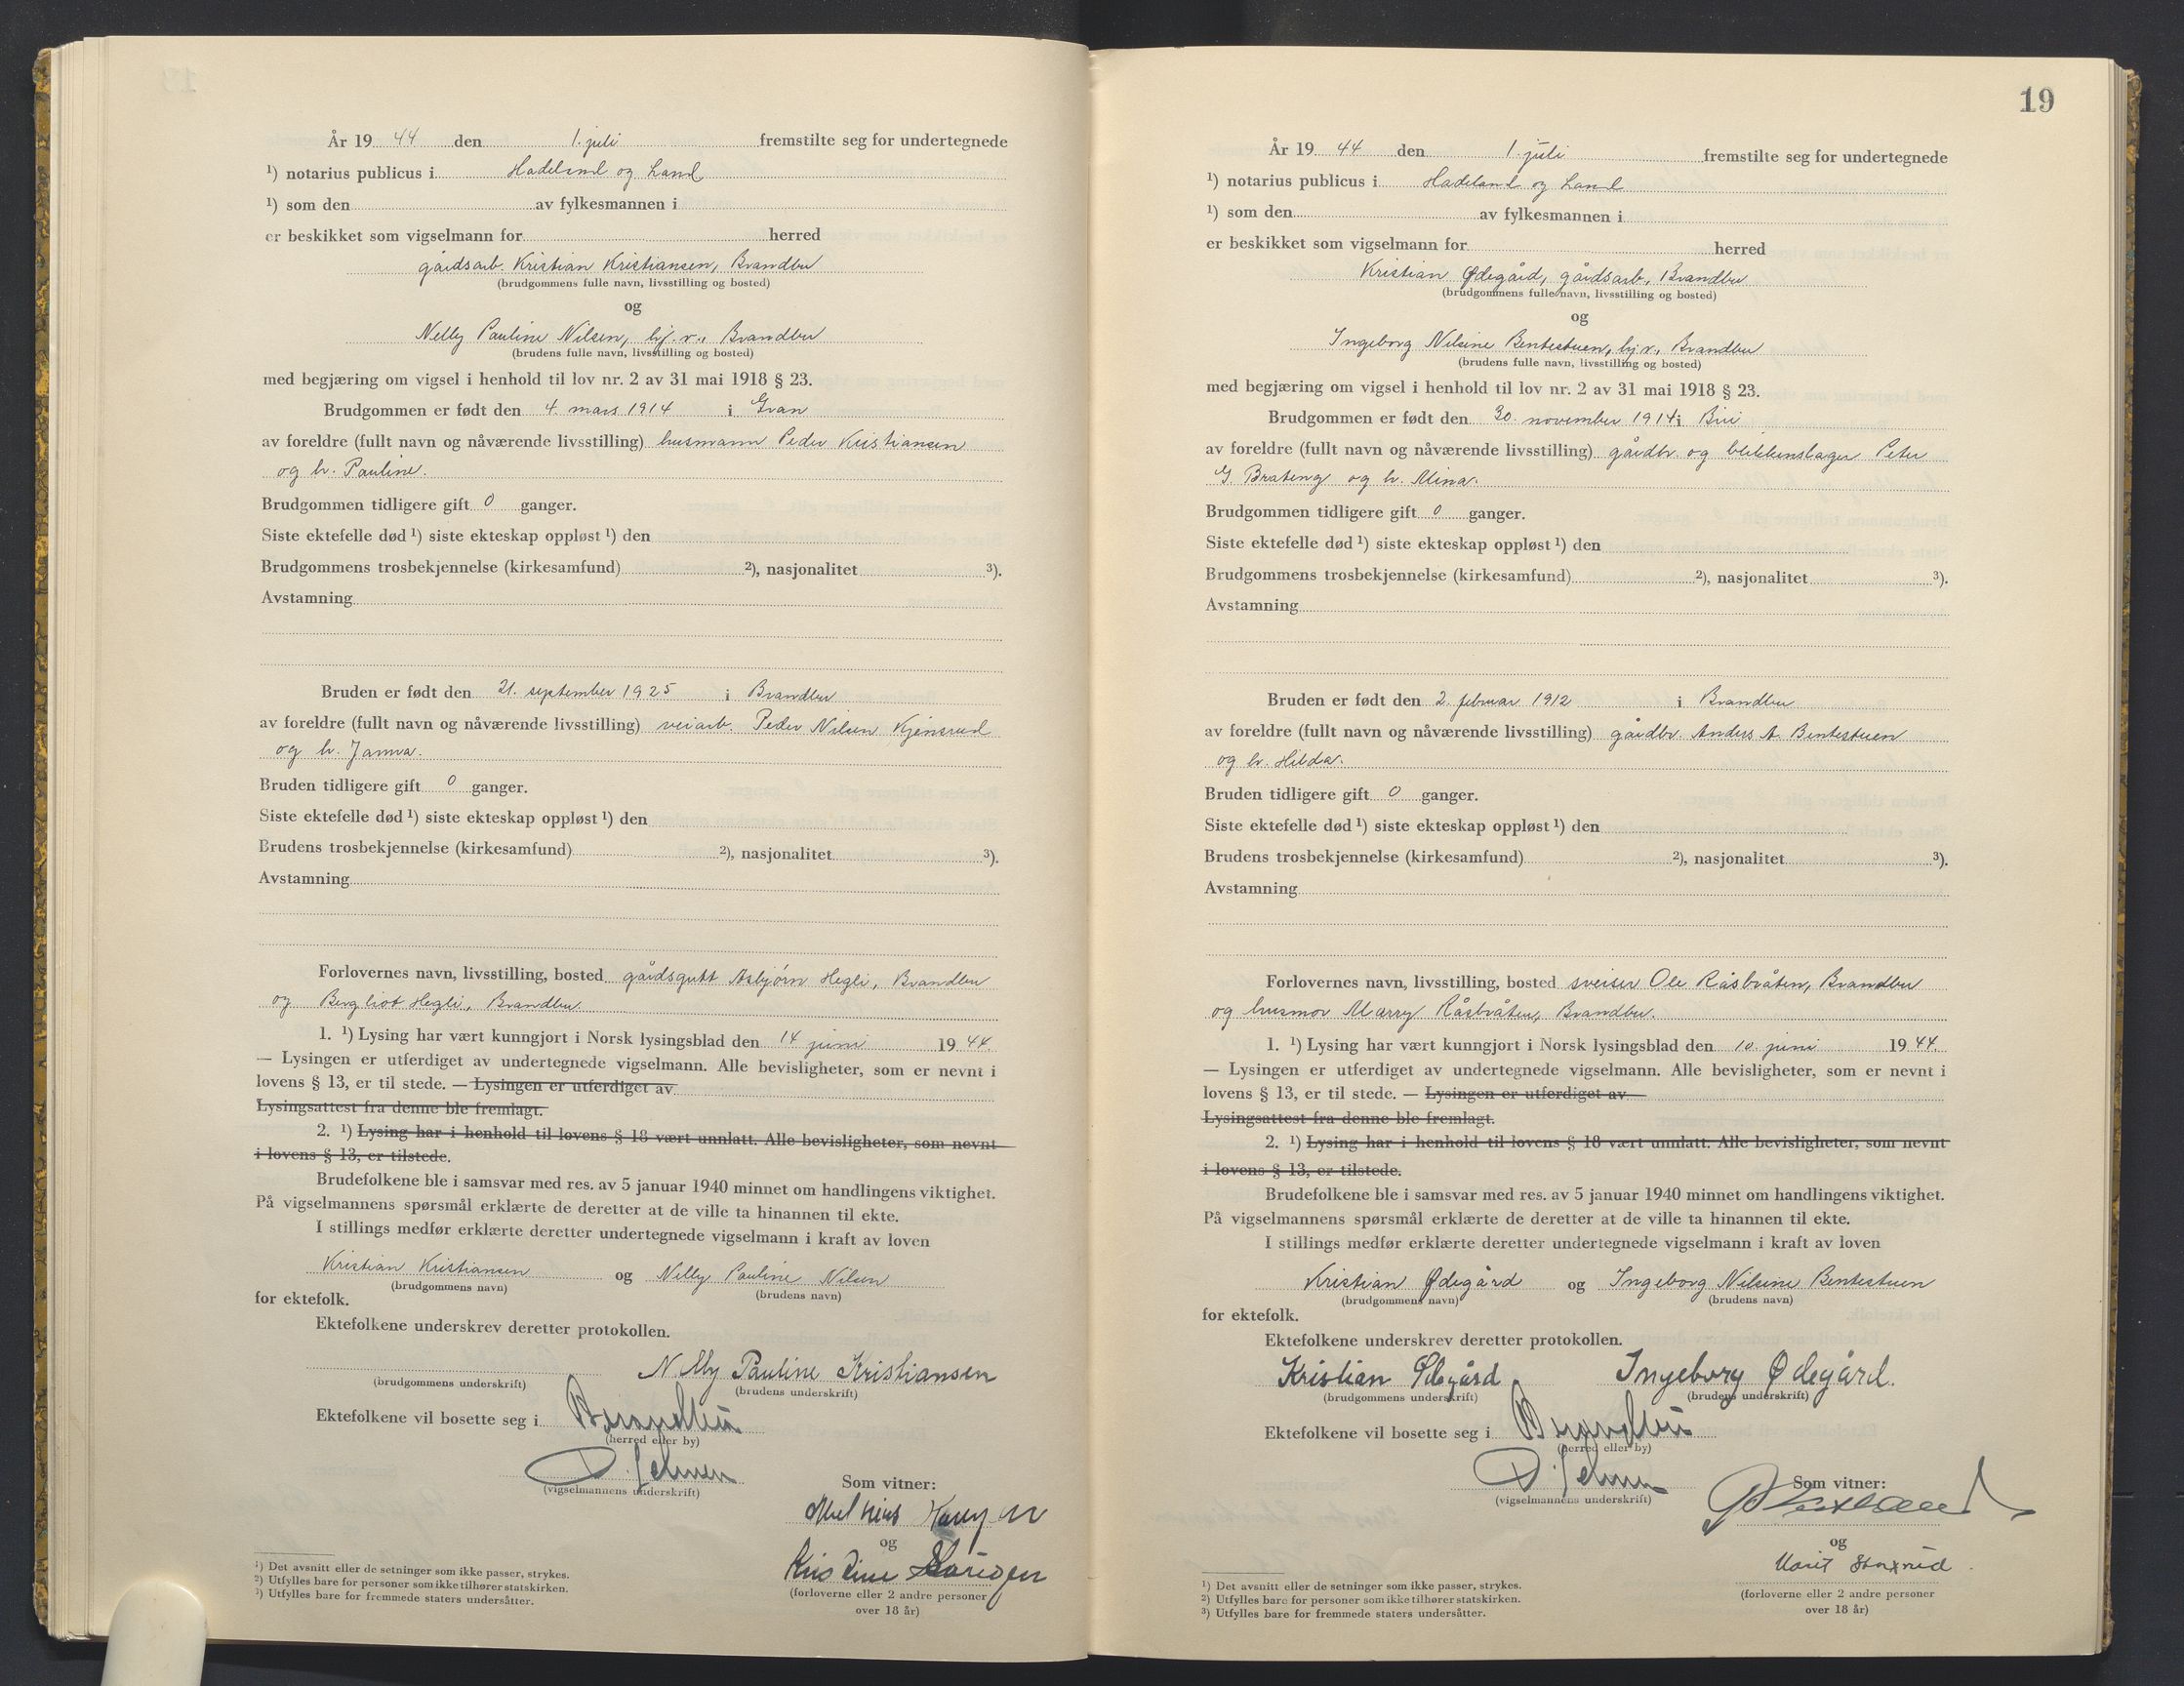 År 19 44 den 1. juli fremstilte seg for undertegnede
¹) notarius publicus i Hadeland og Land
¹) som den av fylkesmannen i
er beskikket som vigselmann for herred
gårdsarb. Kristian Kristiansen, Brandbu
(brudgommens fulle navn, livsstilling og bosted)
og
Nelly Pauline Nilsen, hj.v., Brandbu
(brudens fulle navn, livsstilling og bosted)
med begjæring om vigsel i henhold til lov nr. 2 av 31 mai 1918 § 23.
Brudgommen er født den 4. mars 1914 i Gran
av foreldre (fullt navn og nåværende livsstilling) husmann Peder Kristiansen
og h. Pauline.
Brudgommen tidligere gift 0 ganger.
Siste ektefelle død ¹) siste ekteskap oppløst ¹) den
Brudgommens trosbekjennelse (kirkesamfund) ²), nasjonalitet ³).
Avstamning
Bruden er født den 21. september 1925 i Brandbu
av foreldre (fullt navn og nåværende livsstilling) veiarb. Peder Nilsen Kjensrud
og h. Janna.
Bruden tidligere gift 0 ganger.
Siste ektefelle død ¹) siste ekteskap oppløst ¹) den
Brudens trosbekjennelse (kirkesamfund) ²), nasjonalitet ³).
Avstamning
Forlovernes navn, livsstilling, bosted gårdsgutt Asbjörn Hegli, Brandbu
og Bergliot Hegli, Brandbu.
1. ¹) Lysing har vært kunngjort i Norsk lysingsblad den 14 juni 19 44.
— Lysingen er utferdiget av undertegnede vigselmann. Alle bevisligheter, som er nevnt i
lovens § 13, er til stede. — Lysingen er utferdiget av
Lysingsattest fra denne ble fremlagt.
2. ¹) Lysing har i henhold til lovens § 18 vært unnlatt. Alle bevisligheter, som nevnt
i lovens § 13, er tilstede.
Brudefolkene ble i samsvar med res. av 5 januar 1940 minnet om handlingens viktighet.
På vigselmannens spørsmål erklærte de deretter at de ville ta hinannen til ekte.
I stillings medfør erklærte deretter undertegnede vigselmann i kraft av loven
Kristian Kristiansen og Nelly Pauline Nilsen
(brudgommens navn) (brudens navn)
for ektefolk.
Ektefolkene underskrev deretter protokollen.
Nelly Pauline Kristiansen
(brudgommens underskrift) (brudens underskrift)
Ektefolkene vil bosette seg i Brandbu
(herred eller by)
(vigselmannens underskrift)
Som vitner:
og
Kristine
(forloverne eller 2 andre personer
over 18 år)
¹) Det avsnitt eller de setninger som ikke passer, strykes.
²) Utfylles bare for personer som ikke tilhører statskirken.
³) Utfylles bare for fremmede staters undersåtter.
19
År 19 44 den 1. juli fremstilte seg for undertegnede
¹) notarius publicus i Hadeland og Land
¹) som den av fylkesmannen i
er beskikket som vigselmann for herred
Kristian Ødegård, gårdsarb., Brandbu
(brudgommens fulle navn, livsstilling og bosted)
og
Ingeborg Nilsine Bentestuen, hj.v., Brandbu
(brudens fulle navn, livsstilling og bosted)
med begjæring om vigsel i henhold til lov nr. 2 av 31 mai 1918 § 23.
Brudgommen er født den 30. november 1914 i Biri
av foreldre (fullt navn og nåværende livsstilling) gårdbr. og blikkenslager Peter
G. Brateng og h. Mina.
Brudgommen tidligere gift 0 ganger.
Siste ektefelle død ¹) siste ekteskap oppløst ¹) den
Brudgommens trosbekjennelse (kirkesamfund) ²), nasjonalitet ³).
Avstamning
Bruden er født den 2. februar 1912 i Brandbu
av foreldre (fullt navn og nåværende livsstilling) gårdbr. Anders A. Bentestuen
og h. Hilda.
Bruden tidligere gift 0 ganger.
Siste ektefelle død ¹) siste ekteskap oppløst ¹) den
Brudens trosbekjennelse (kirkesamfund) ²), nasjonalitet ³).
Avstamning
Forlovernes navn, livsstilling, bosted sveiser Ole Råsbråten, Brandbu
og husmor Marry Råsbråten, Brandbu.
1. ¹) Lysing har vært kunngjort i Norsk lysingsblad den 10. juni 19 44.
— Lysingen er utferdiget av undertegnede vigselmann. Alle bevisligheter, som er nevnt i
lovens § 13, er til stede. — Lysingen er utferdiget av
Lysingsattest fra denne ble fremlagt.
2. ¹) Lysing har i henhold til lovens § 18 vært unnlatt. Alle bevisligheter, som nevnt
i lovens § 13, er tilstede.
Brudefolkene ble i samsvar med res. av 5 januar 1940 minnet om handlingens viktighet.
På vigselmannens spørsmål erklærte de deretter at de ville ta hinannen til ekte.
I stillings medfør erklærte deretter undertegnede vigselmann i kraft av loven
Kristian Ødegård og Ingeborg Nilsine Bentestuen
(brudgommens navn) (brudens navn)
for ektefolk.
Ektefolkene underskrev deretter protokollen.
Kristian Ødegård Ingeborg Ødegård.
(brudgommens underskrift) (brudens underskrift)
Ektefolkene vil bosette seg i Brandbu
(herred eller by)
(vigselmannens underskrift)
Som vitner:
og
Marit
(forloverne eller 2 andre personer
over 18 år)
¹) Det avsnitt eller de setninger som ikke passer, strykes.
²) Utfylles bare for personer som ikke tilhører statskirken.
³) Utfylles bare for fremmede staters undersåtter.